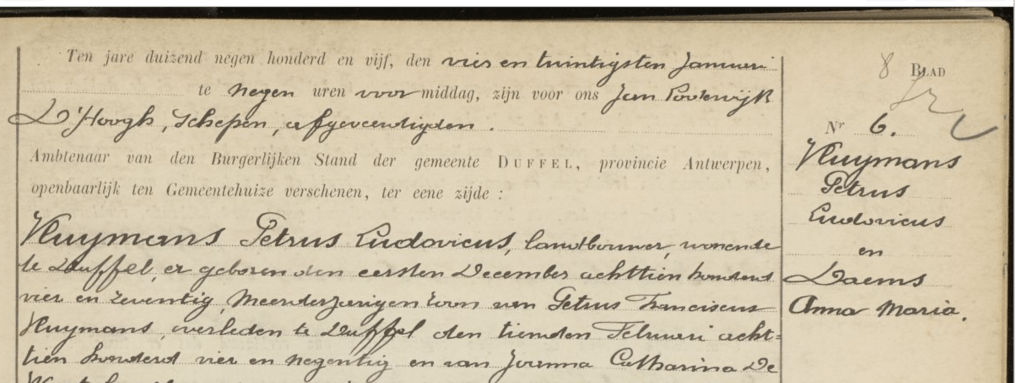 Ten jare duizend negen honderd en vijf, den vier en twintigsten Januari
te negen uren voor middag, zijn voor ons Jan Lodewijk
D'Hoogh, Schepen, afgeveerdigden.
Ambtenaar van den Burgerlijken Stand der gemeente DUFFEL, provincie Antwerpen,
openbaarlijk ten Gemeentehuize verschenen, ter eene zijde :
Huymans Petrus Ludovicus, landbouwer, wonende
te Duffel, er geboren den eersten December achttien honderd
vier en zeventig, meerderjarigen zoon van Petrus Franciscus
Huymans, overleden te Duffel den tienden Februari acht=
tien honderd vier en negentig en van Joanna Catharina De
8 BLAD
Nr 6.
Huymans
Petrus
Ludovicus
en
Daems
Anna Maria.